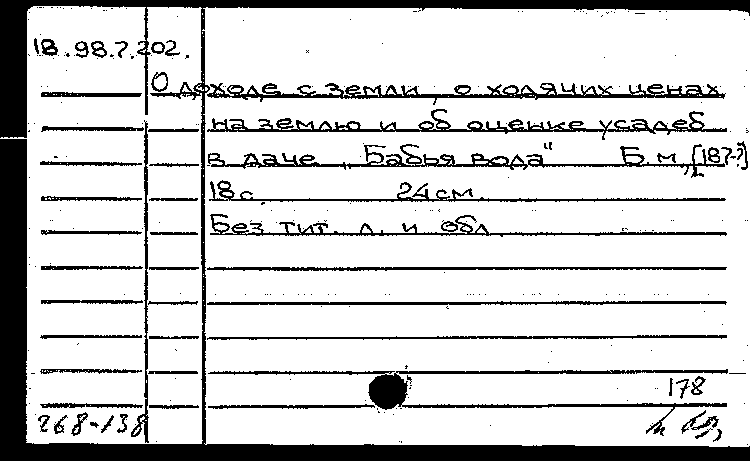 18.98.7.202.
О доходе с земли, о ходячих ценах
на землю и об оценке усадеб
в даче „Бабья вода" Б.м., [187-?]
18 с. 24 см.
Без тит. л. и обл.
178
268-138